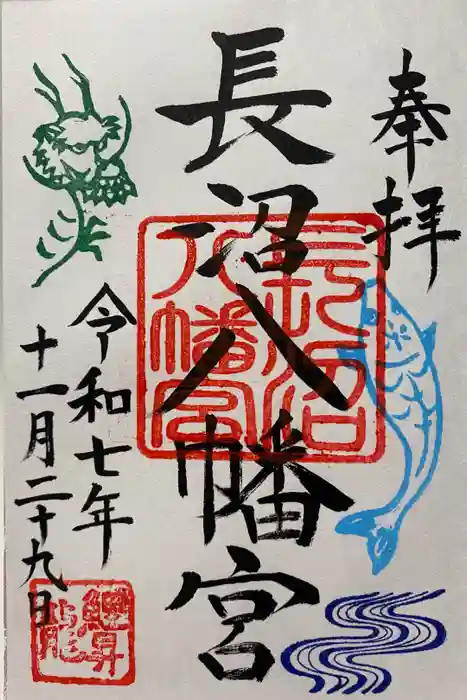 奉拝
長沼八幡宮
長沼
八幡宮
令和七年
十一月二十九日
鯉昇
龍